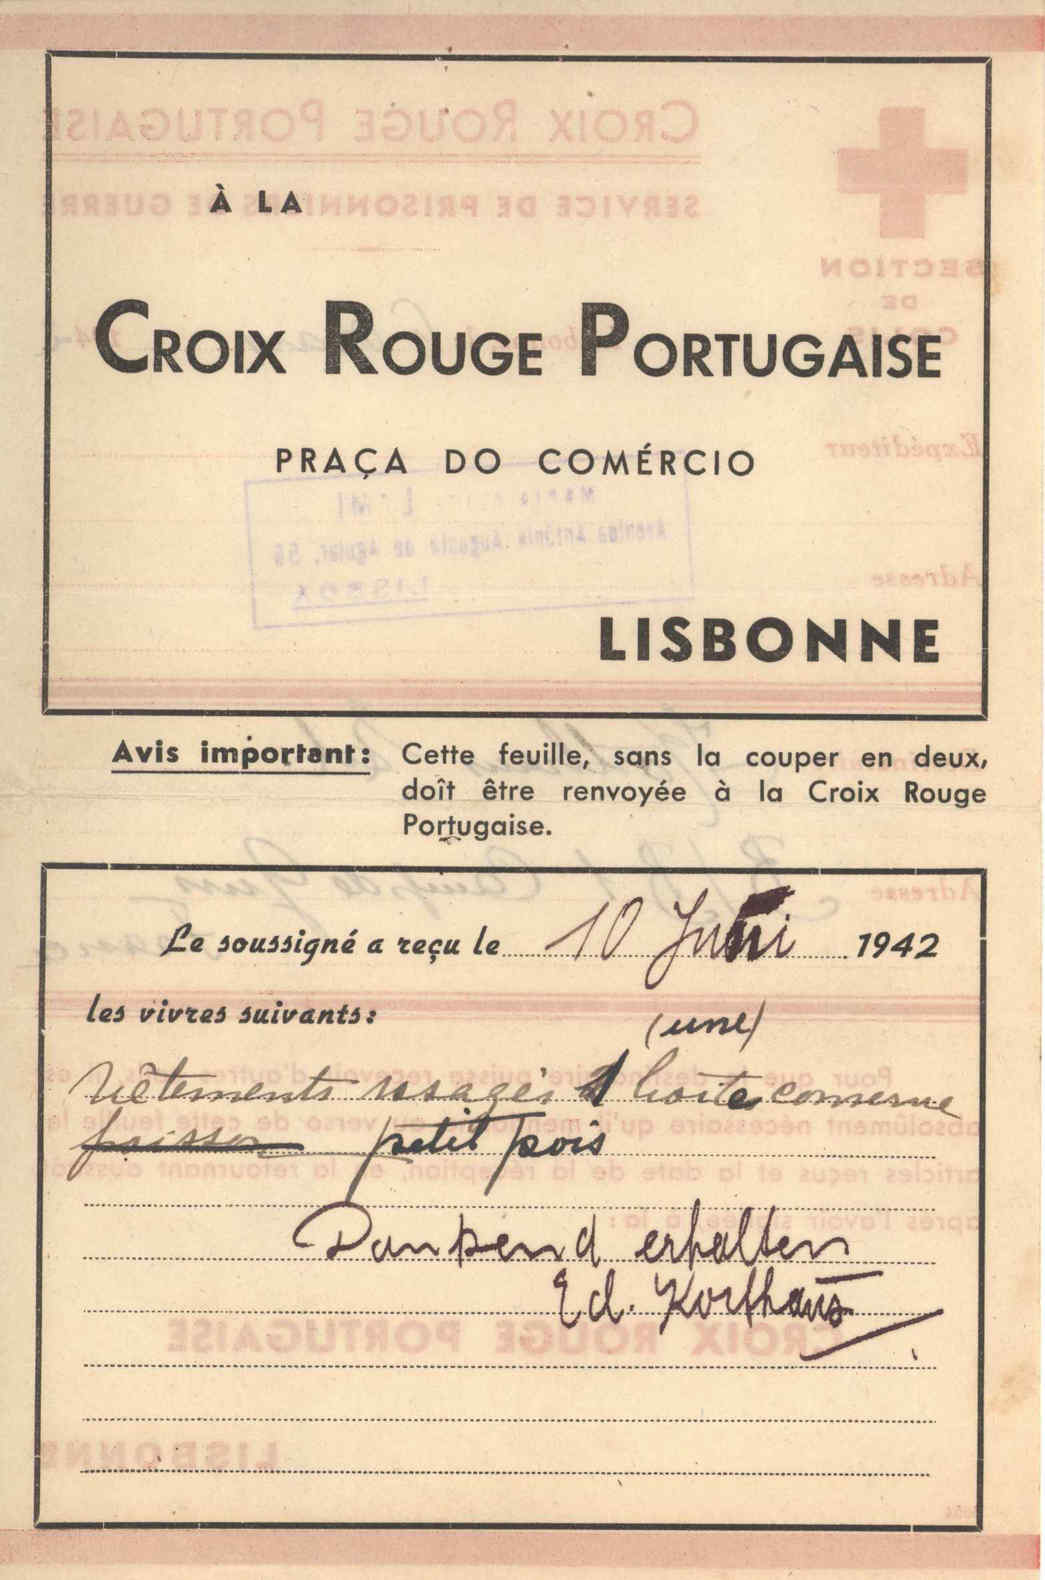 À LA
CROIX ROUGE PORTUGAISE
PRAÇA DO COMÉRCIO
LISBONNE
Avis important: Cette feuille, sans la couper en deux,
doît être renvoyée à la Croix Rouge
Portugaise.
Le soussigné a reçu le 10 Juni 1942
les vivres suivants:
(une)
Vêtements usagés 1 boite conserve
poisson petit pois
Dankend erhalten
Ed. Korthaus